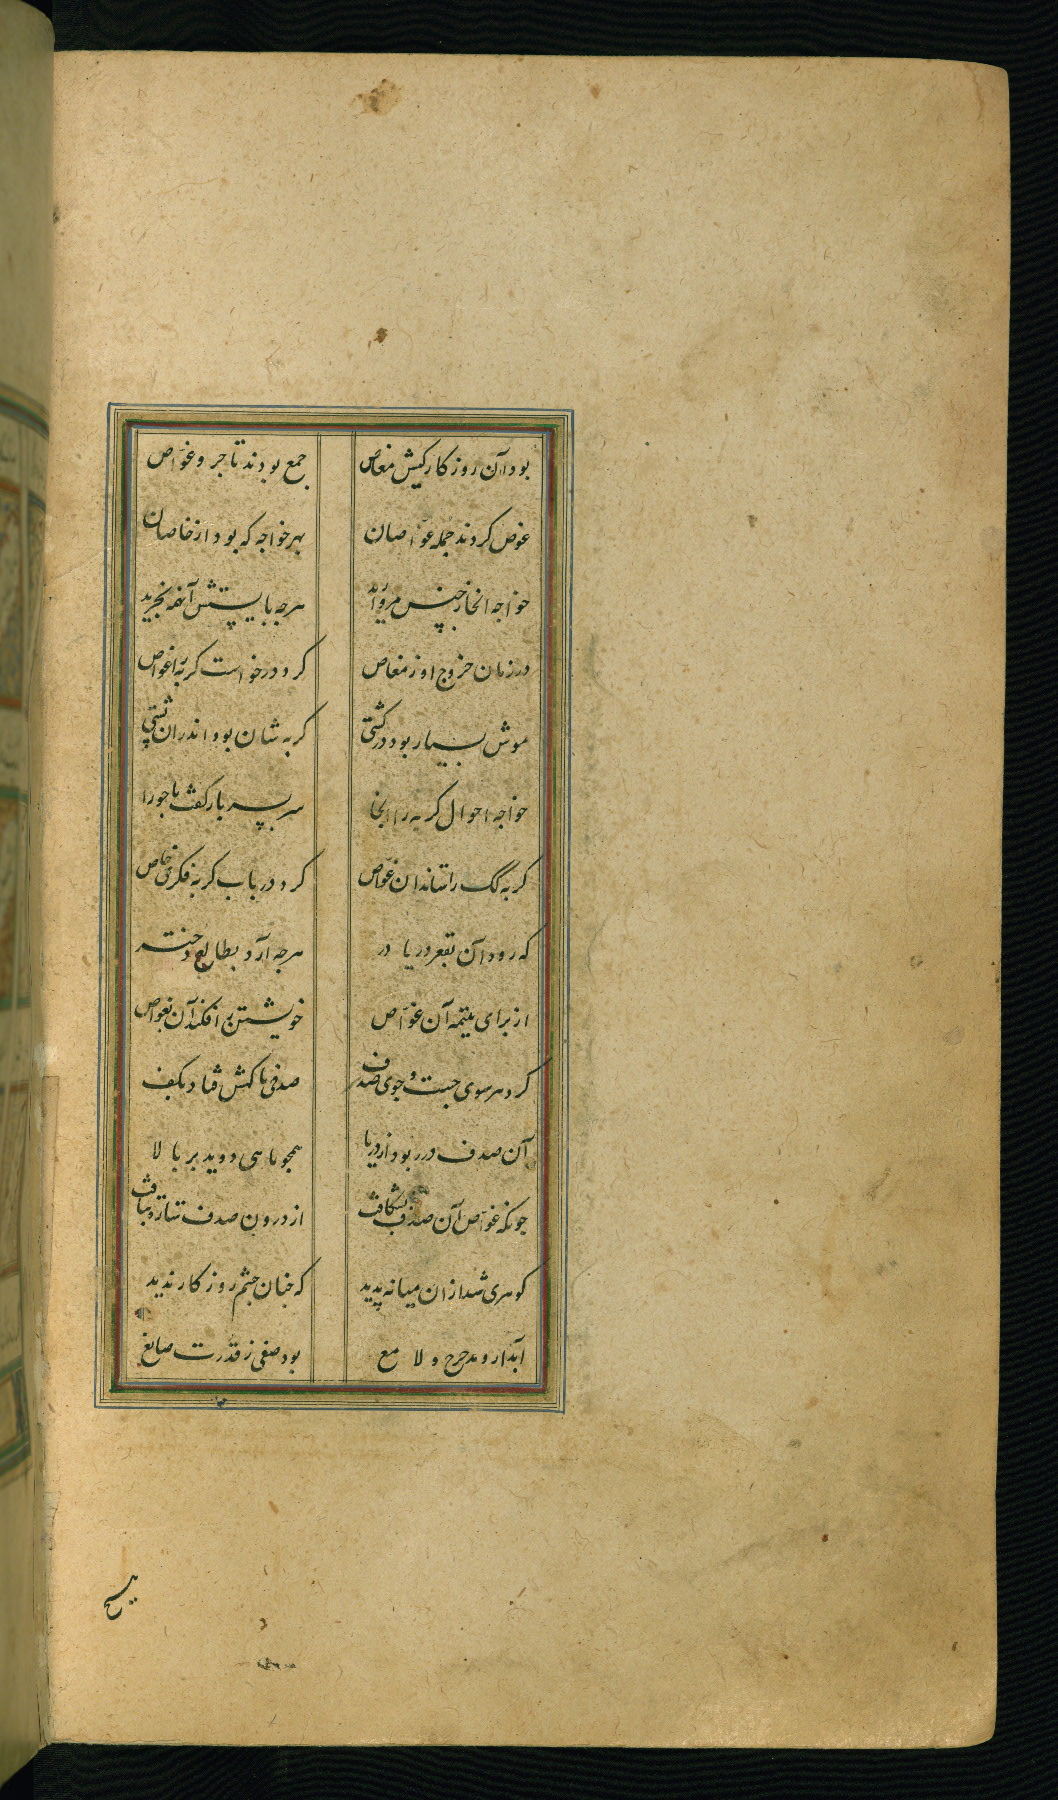 بود آن روز کار کیش مغاص جمع بودند تاجر و غوّاص
غوص کردند جمله غوّاصان بهر خواجه که بود از خاصان
خواجه انجا ز جنس مروارید هرجه بایستش آنهمه بخرید
در زمان خروج او ز مغاص کرد درخواست کربه را غواص
موش بسیار بود در کشتی کربه شان بود اندران پشتی
خواجه احوال کربه را انجا سر بسر باز کفت با جورا
کربه کک را ستاند ان غوّاص کرد در باب کربه فکری خاص
که رود آن بقعر دریا در هرجه آرد بطالع دختر
از برای یتیمه آن غوّاص خویشتن را فکند آن بغواص
کرد هر سوی جست و جوی صدف صدفی ناکهش فتاد بکف
آن صدف در ربود از دریا همجو ماهی دوید بر بالا
جونکه غوّاص آن صدف بشکافت از درون صدف ستاره بتافت
کوهری شد ازان میانه پدید که جنان جشم روزکار ندید
آبدار و مدحرج و لامع بود صنعی ز قدرت صانع
هیج